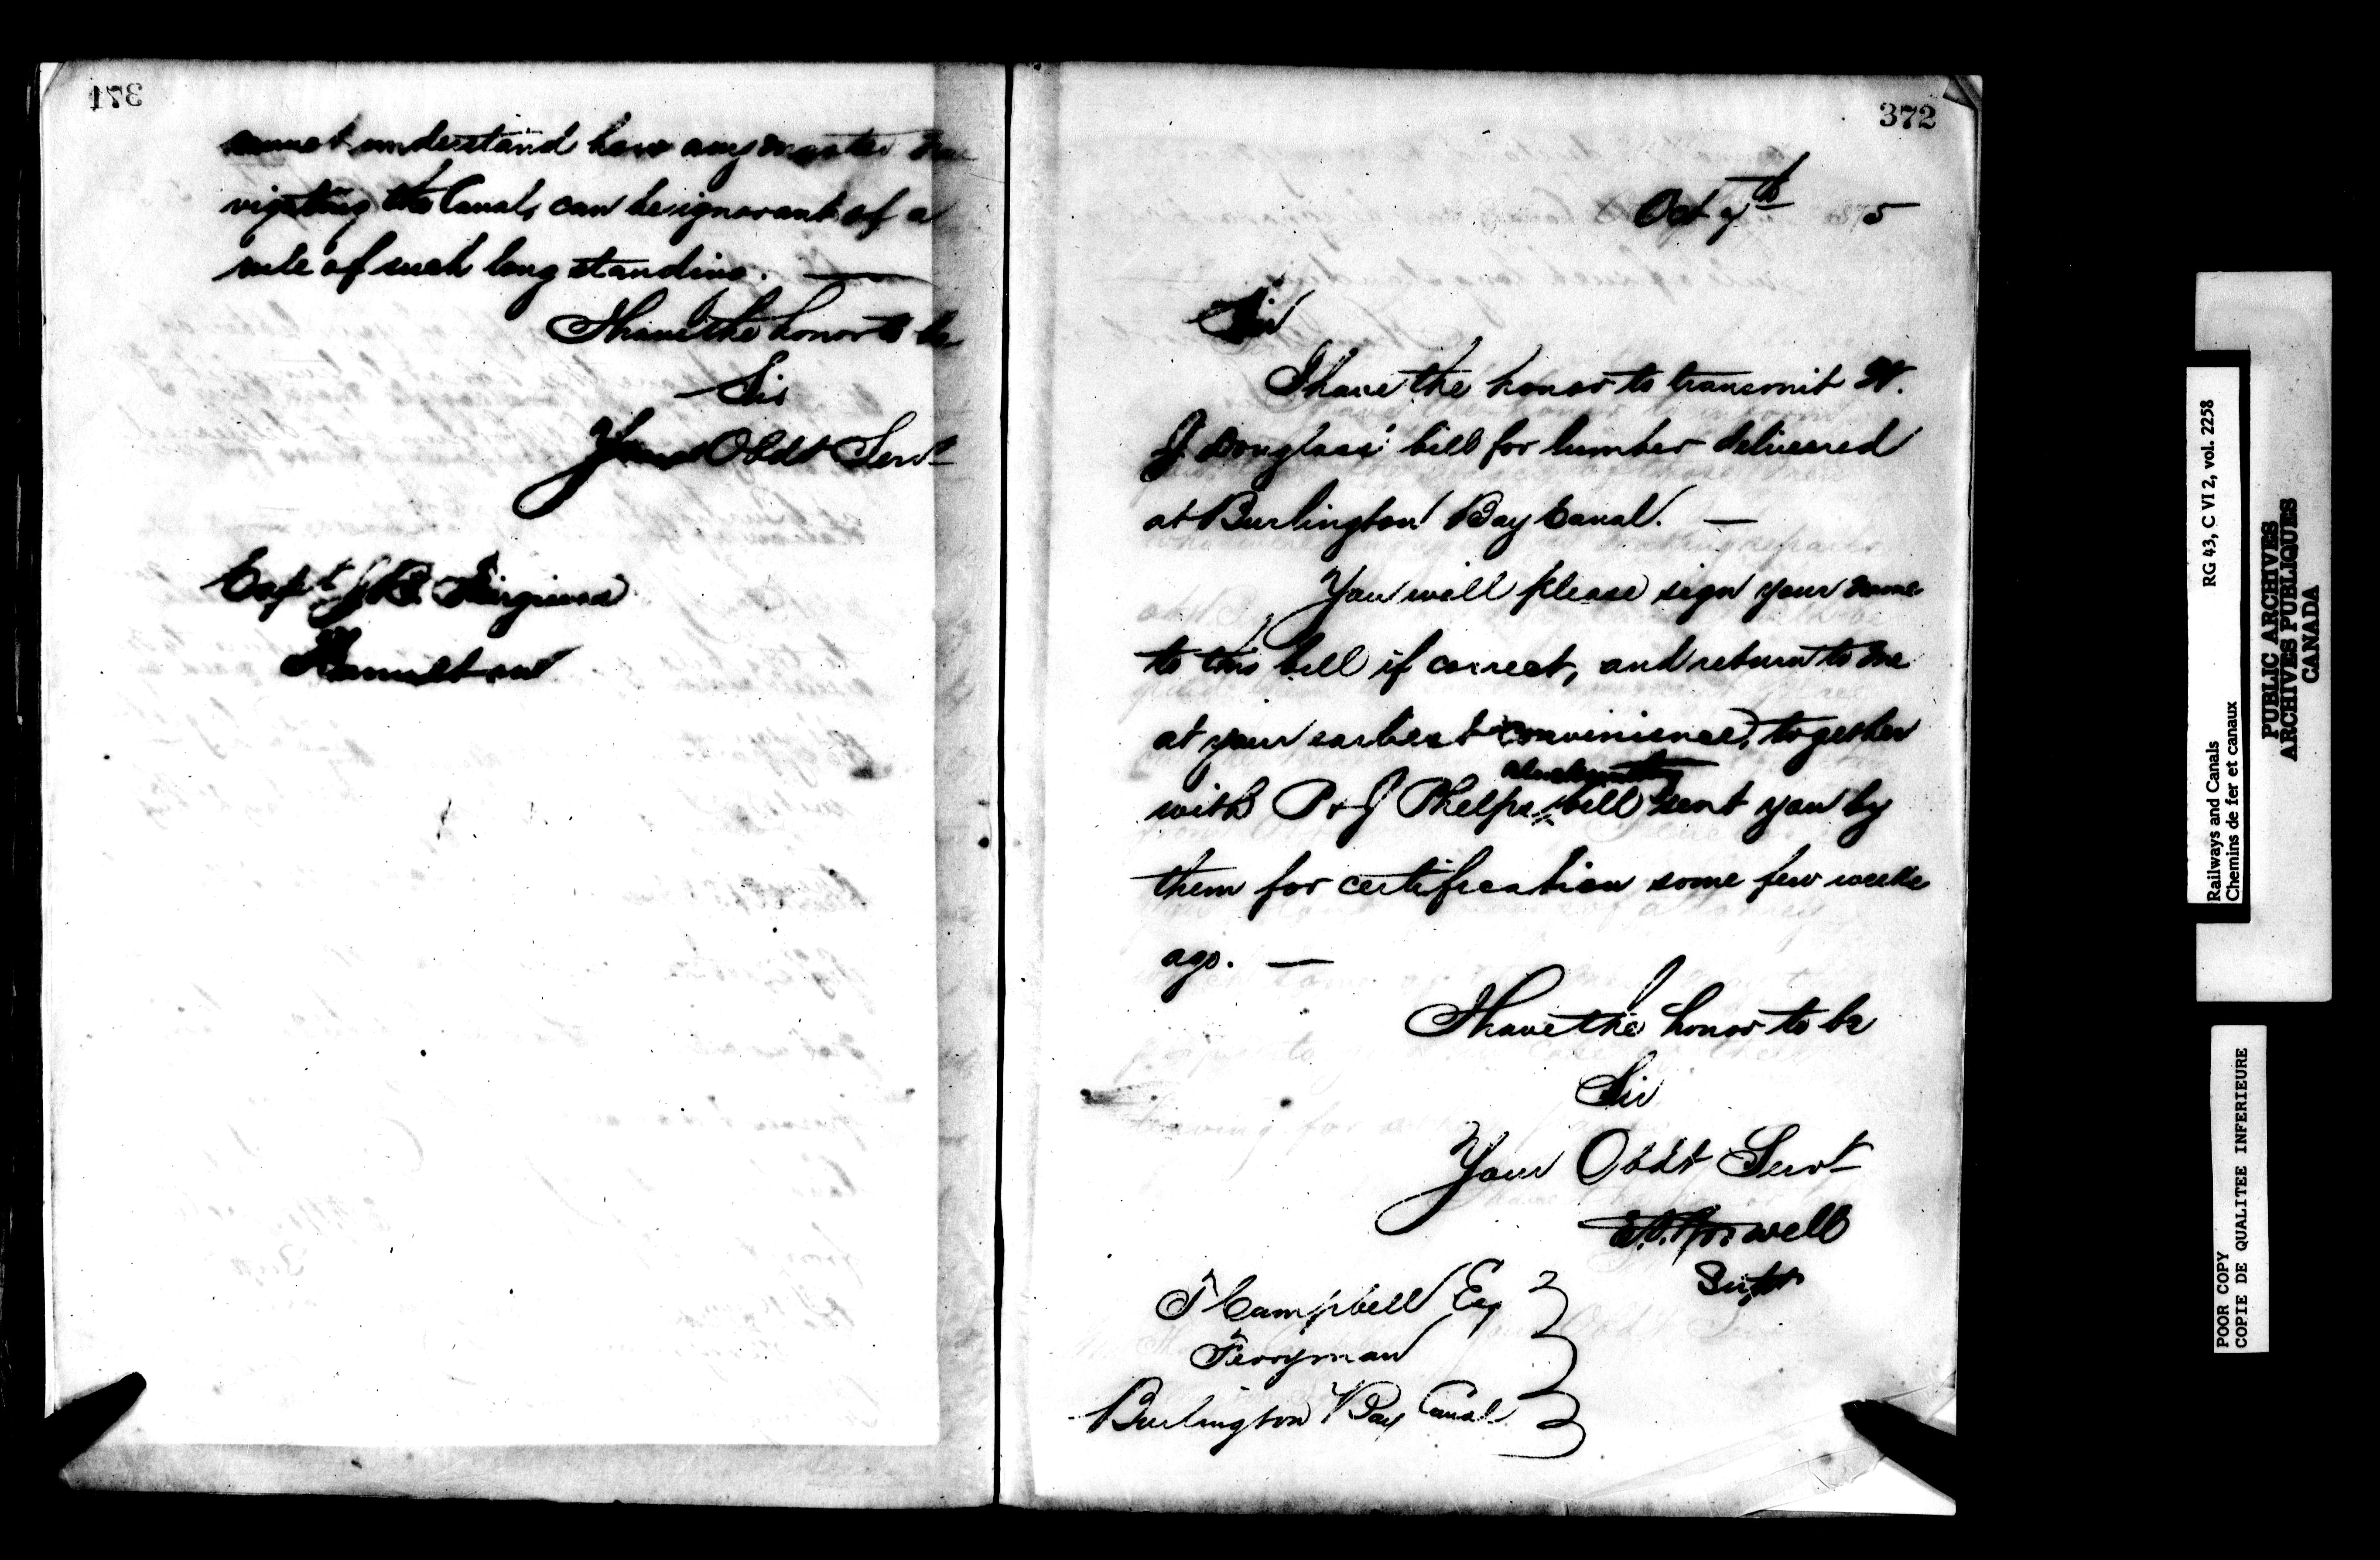 371
cannot understand how any master na
vigating the Canals can be ignorant of a
rule of such long standing. —
I have the honor to be
Sir
Your Obdt Servt
Capt J B. Fairgrieve
Hamilton
372
Oct 7th 75
Sir
I have the honor to transmit W.
J Douglass' bill for lumber delivered
at Burlington Bay Canal. —
You will please sign your name
to this bill if correct, and return to me
at your earliest convenience, together
blacksmithing
with P & J Phelps bill sent you by
them for certification some few weeks
ago. —
I have the honor to be
Sir
Your Obdt Servt
Supt
T Campbell Esq
Ferryman
Burlington Bay Canal
Railways and Canals RG 43, C VI 2, vol. 2258
Chemins de fer et canaux
PUBLIC ARCHIVES
ARCHIVES PUBLIQUES
CANADA
POOR COPY
COPIE DE QUALITEE INFERIEURE